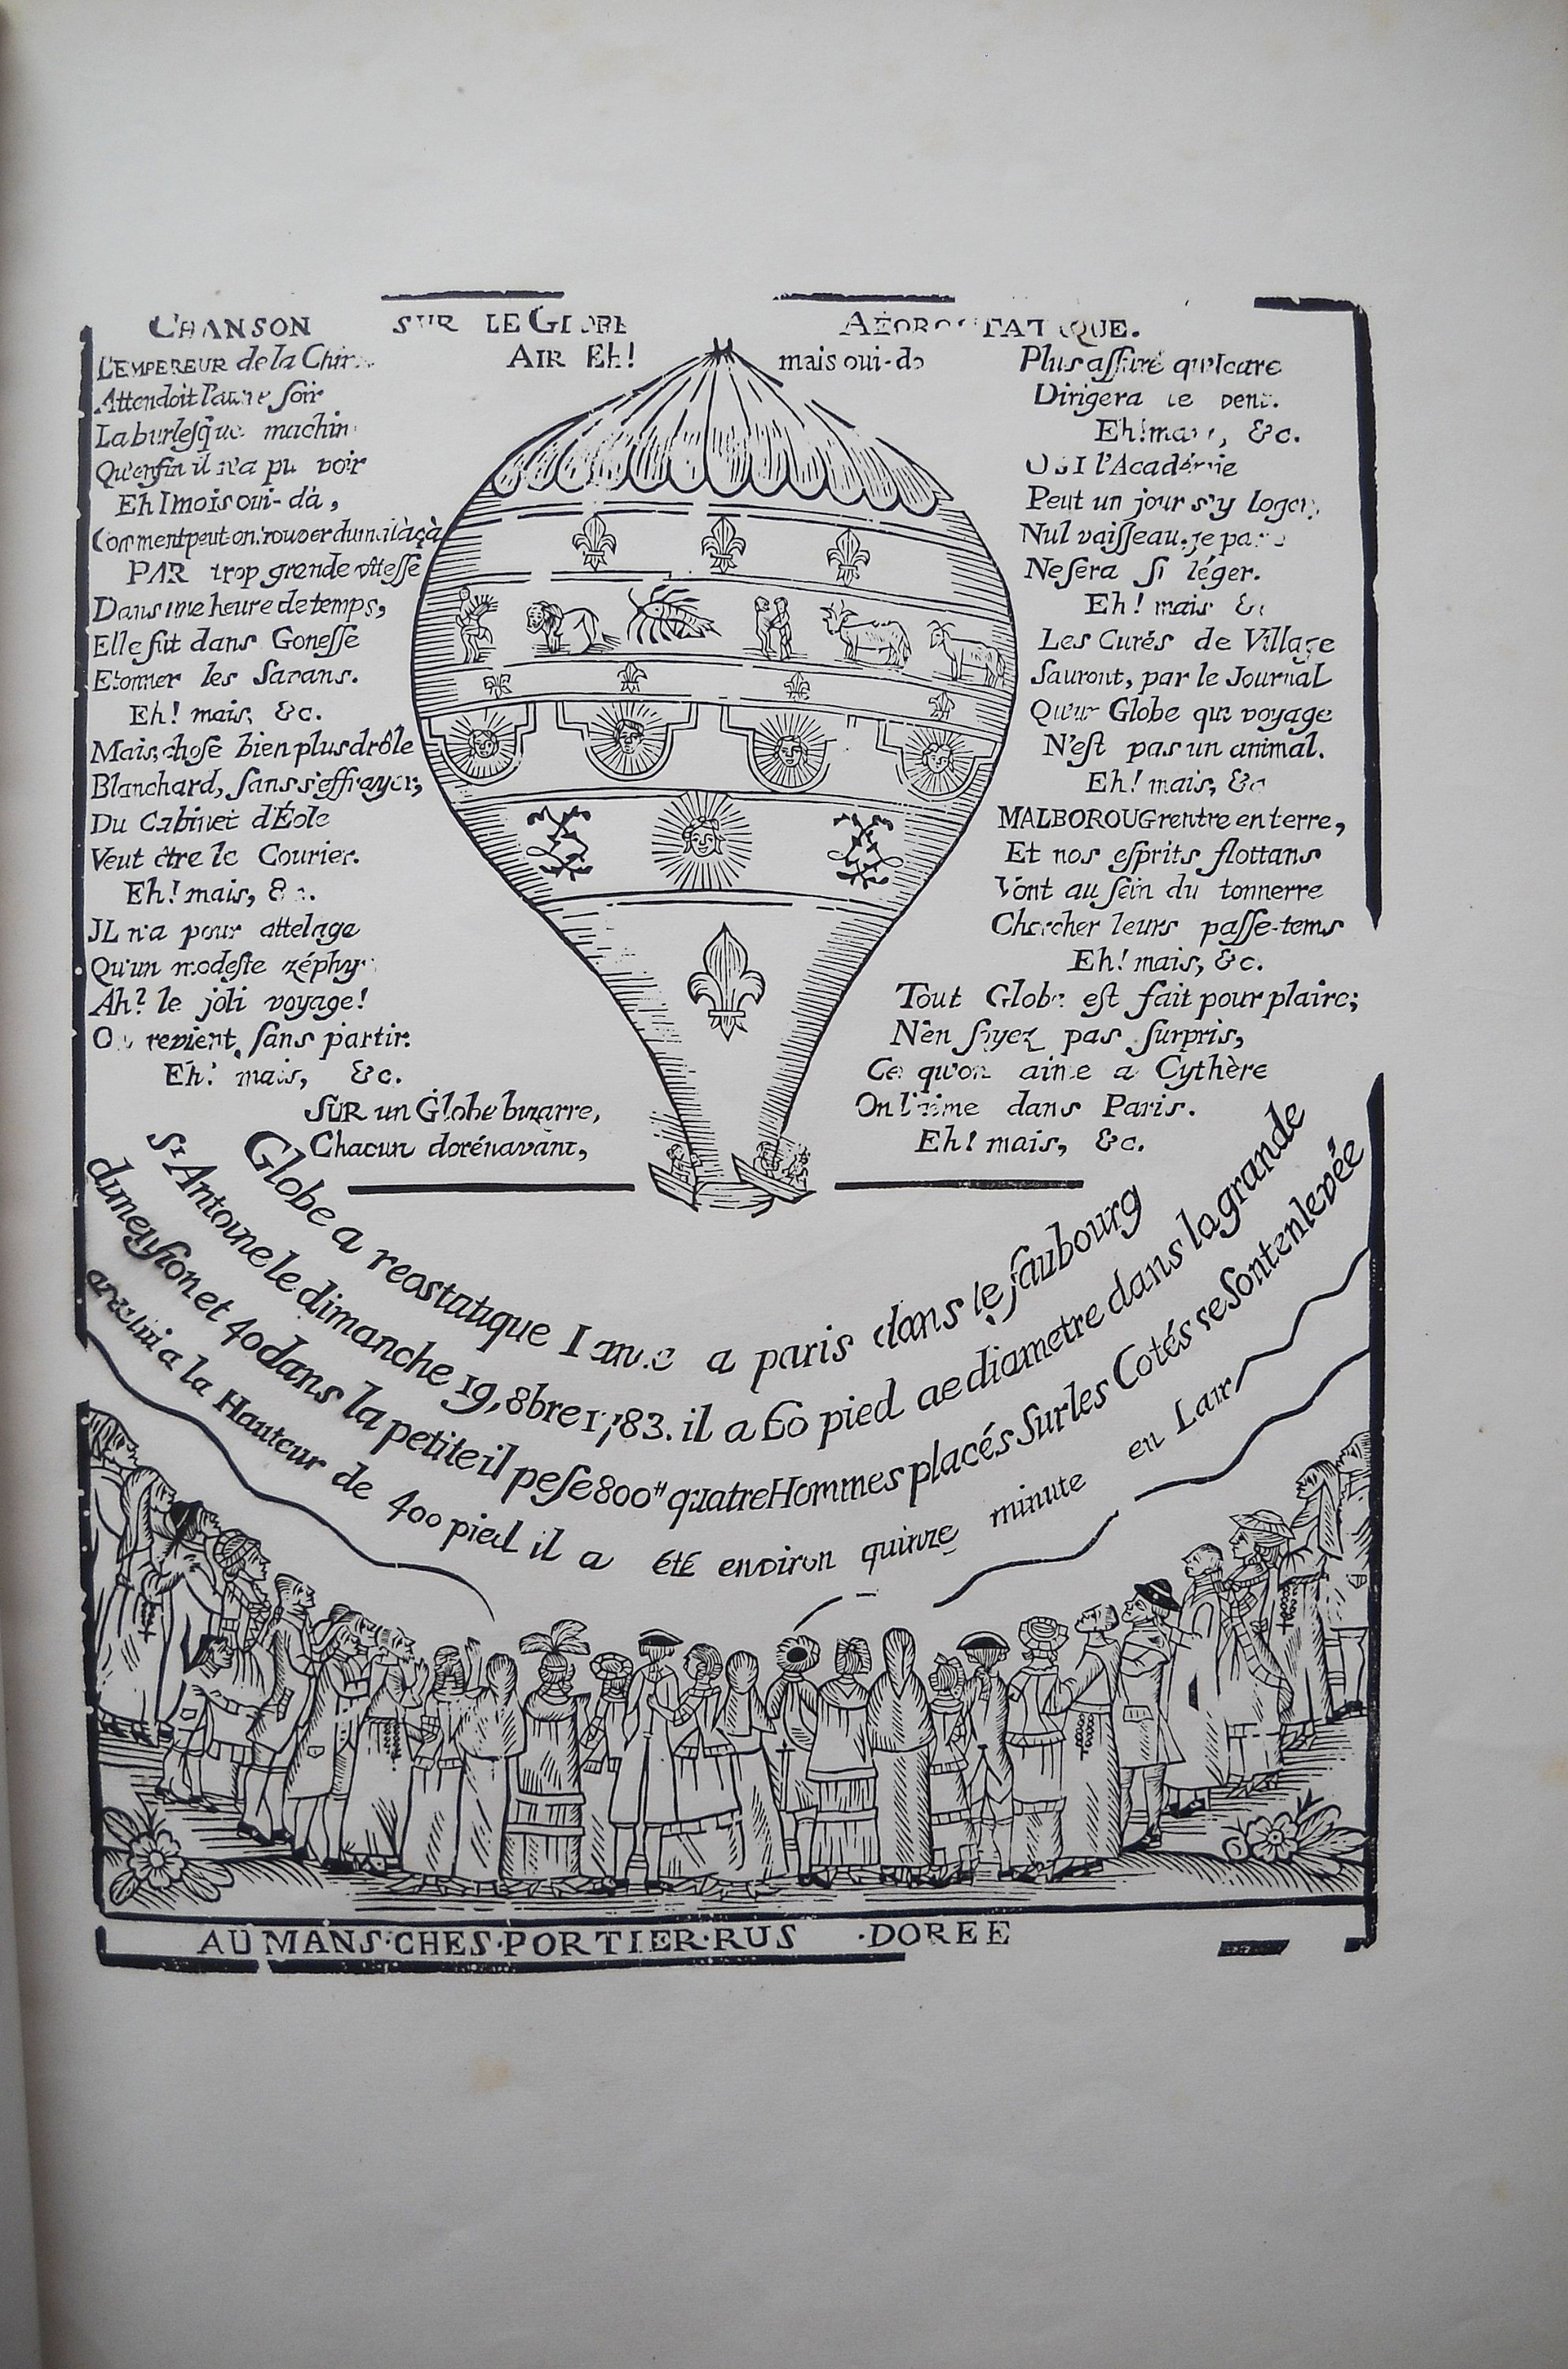 CHANSON SUR LE GLOBE
AIR Eh! mais oui-da
L'EMPEREUR de la
Attendoit l'autre ſoir
La burleſque machin
Qu'enfin il n'a pu voir
Eh! mois oui-dà,
Comment peut on
PAR trop grande vîteſſe
Dans une heure de temps,
Elle fut dans Goneſſe
Etonner les Sarans.
Eh! mais, &c.
Mais, choſe bien plus drôle
Blanchard, ſans s'effrayer,
Du Cabinet d'Éole
Veut être le Courier.
Eh! mais, &c.
IL n'a pour attelage
Qu'un modeſte zéphy
Ah? le joli voyage!
On revient, ſans partir.
Eh! mais, &c.
SUR un Globe bizarre,
Chacun dorénavant,
Plus aſſuré qu'Icare
Dirigera le vent.
Eh! mais, &c.
OUI l'Académie
Peut un jour s'y loger,
Nul vaiſſeau, je
Ne ſera ſi léger.
Eh! mais &
Les Curés de Village
Sauront, par le Journal
Qu'un Globe qui voyage
N'eſt pas un animal.
Eh! mais, &c
MALBOROUG rentre en terre,
Et nos eſprits flottans
Vont au ſein du tonnerre
Chercher leurs paſſe-tems
Eh! mais, &c.
Tout Globe eſt fait pour plaire;
N'en ſoyez pas ſurpris,
Ce qu'on aime a Cythère
On l'aime dans Paris.
Eh! mais, &c.
Globe a reostatique a paris dans le faubourg
St Antoine le dimanche 19, 8bre 1783. il a 60 pied de diametre dans la grande
dumenſion et 40 dans la petite il peſe 800" quatre Hommes placés Sur les Cotés se Sont enlevée
avec lui a la Hauteur de 400 pied il a été environ quinze minute en Lair
AU MANS·CHES·PORTIER·RUS·DOREE